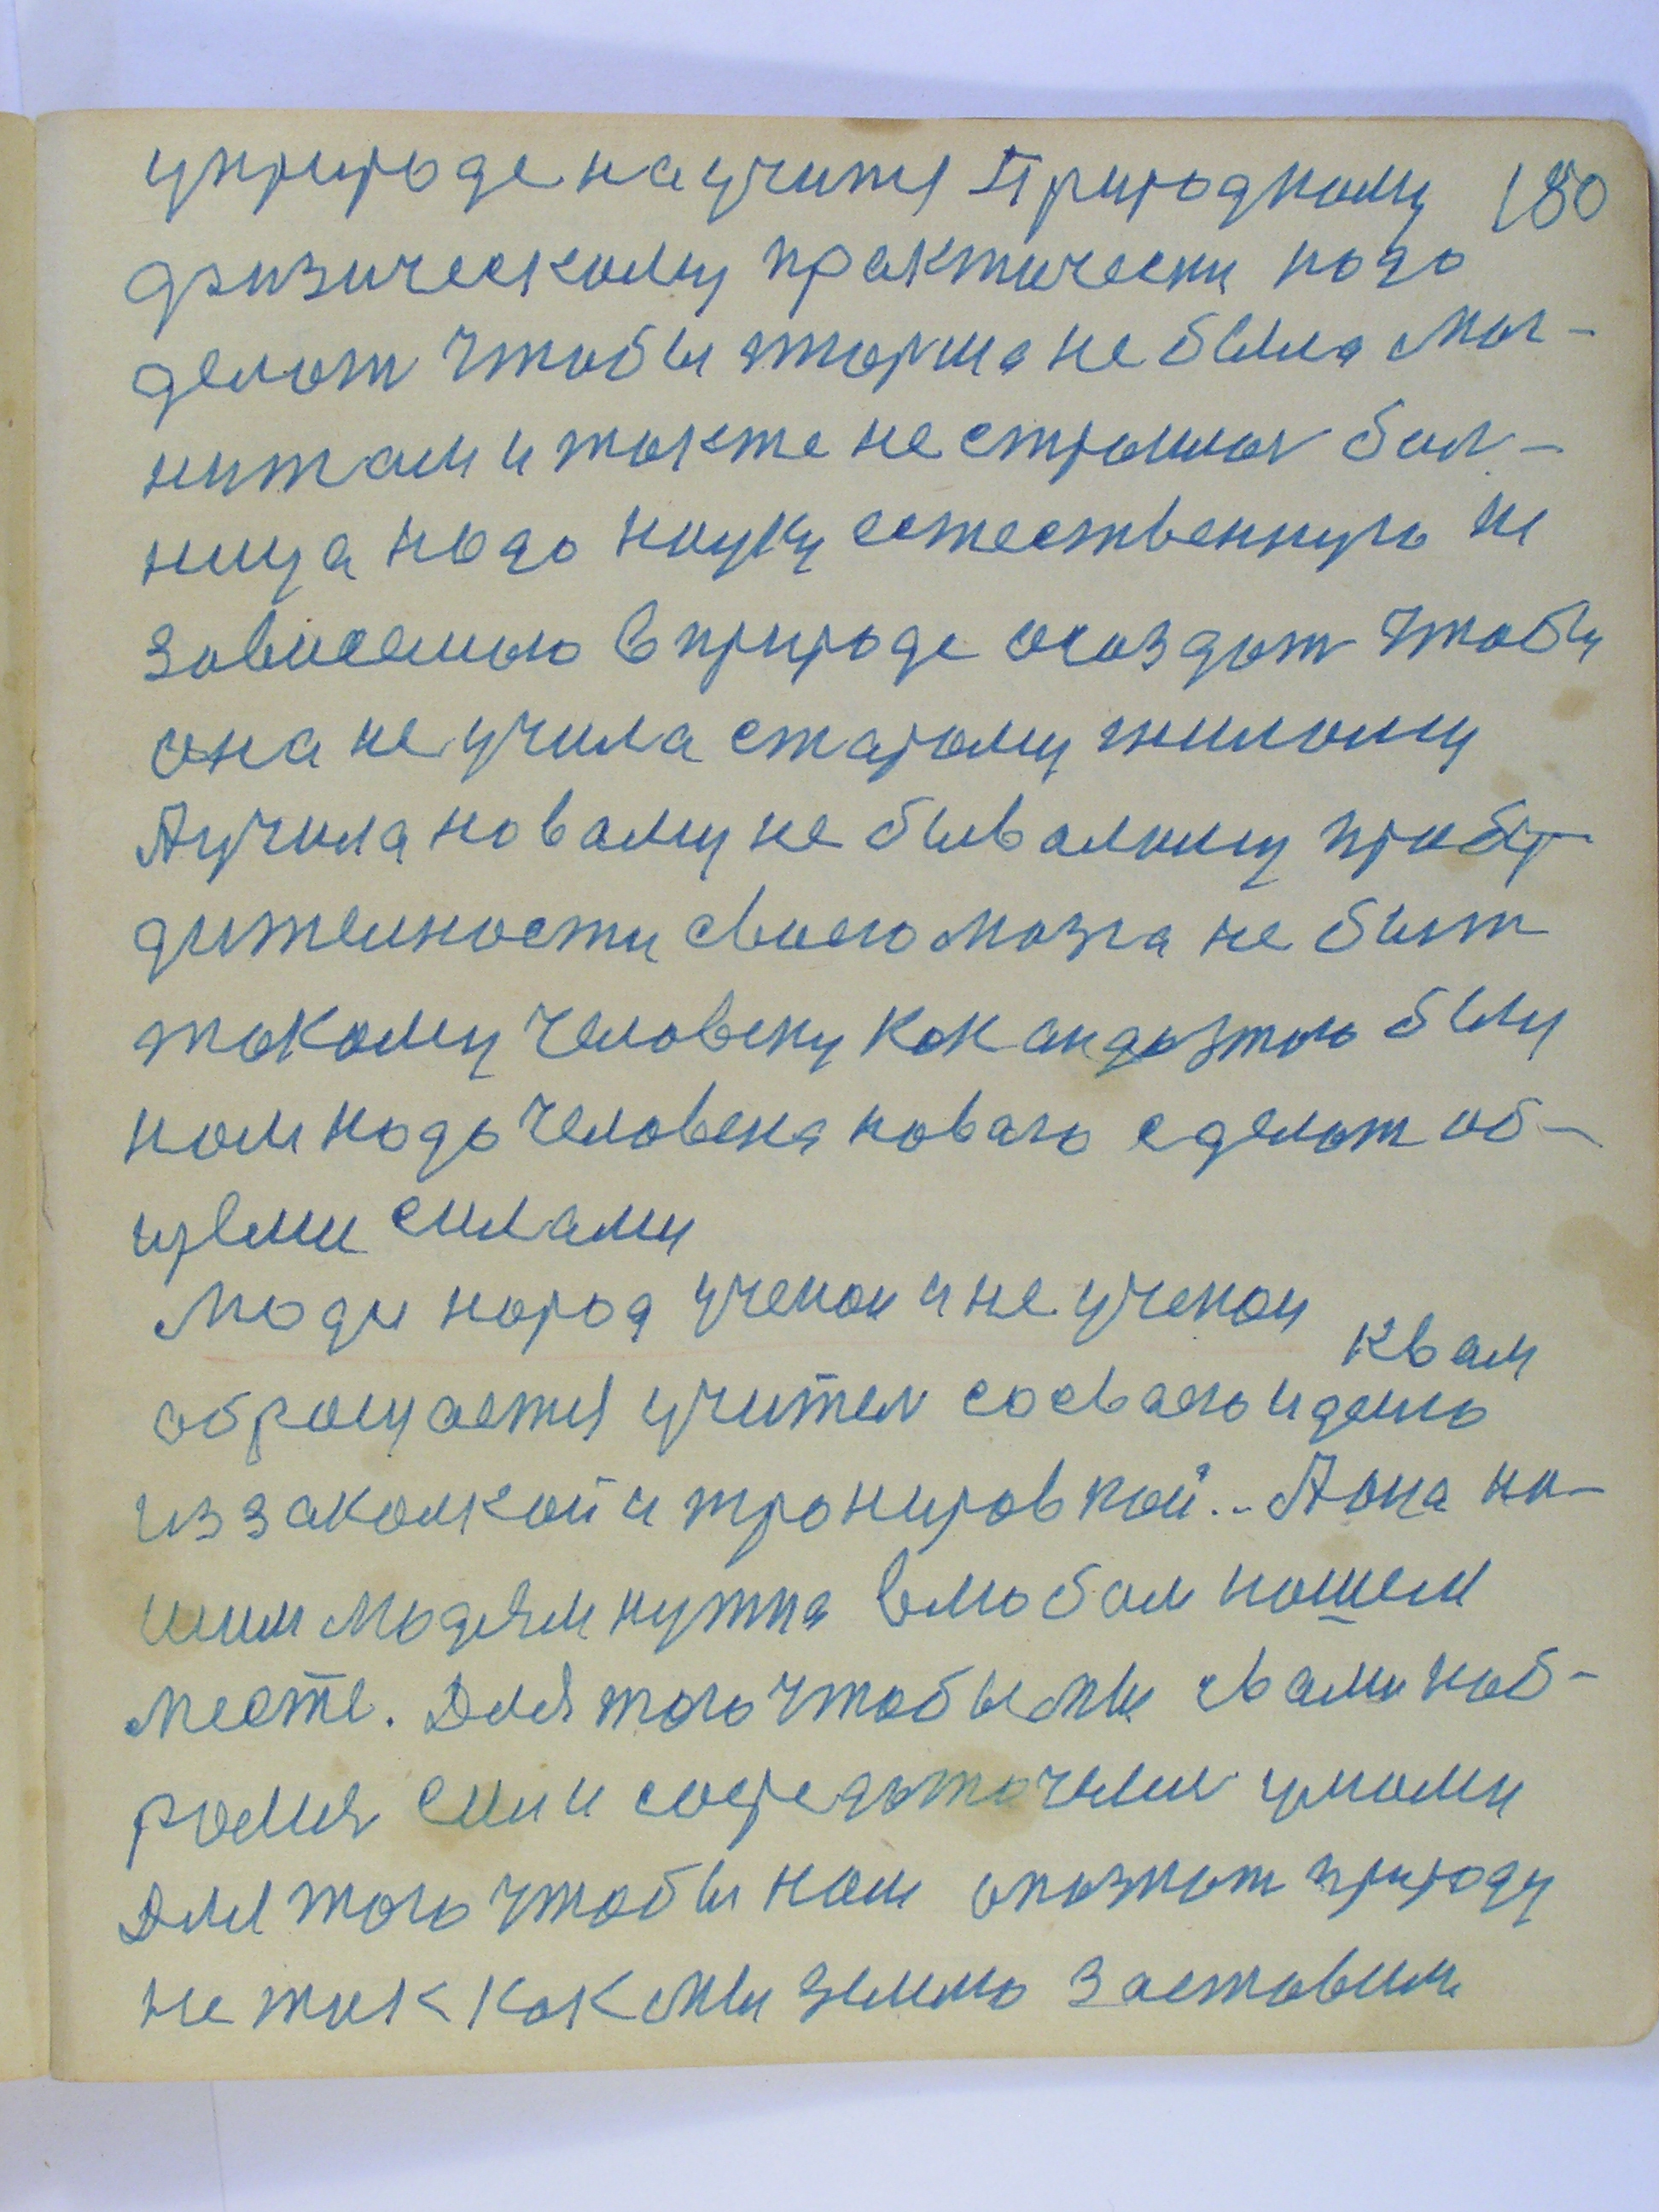 уприроде научится Природному 180
физическому практически надо
делат чтобы тюрма не былла маг-
нитам и также не страшнои бол-
ница надо науку естественную не
зависемую вприроде создат чтобы
она не учила старому гнилому
Аучила новаму не бывалому проб
дителности своего мозга не быт
такому человеку как он до этого былу
нам надо человека новаго сделат об-
щими силами
Люди народ ученои и не ученои
квам
обрашчается учител сосваею идеию
иззакалкой и тронировкой.. Аона на-
шим людям нужна влюбом нашем
месте. Для того чтобы мы свами наб-
ролися сил и сосредоточелис умами
Для того чтобы нам опазнат природу
не так как мы землю заставили